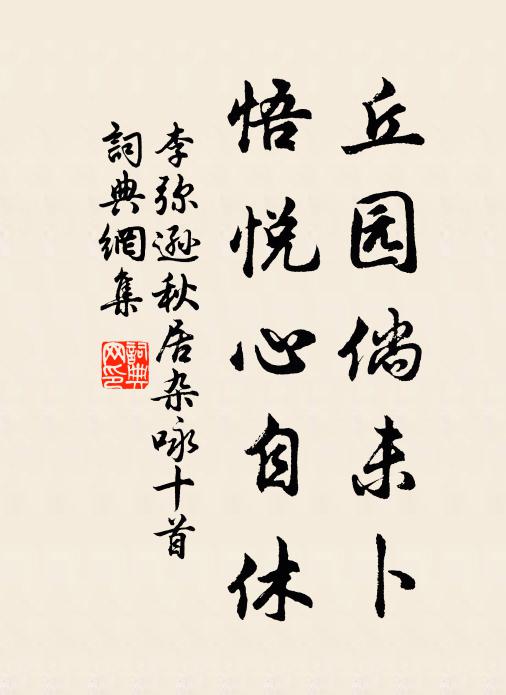 丘园倘未卜
悟悦心自休
李弥逊秋居杂咏十首
詞典網集
詞典网印